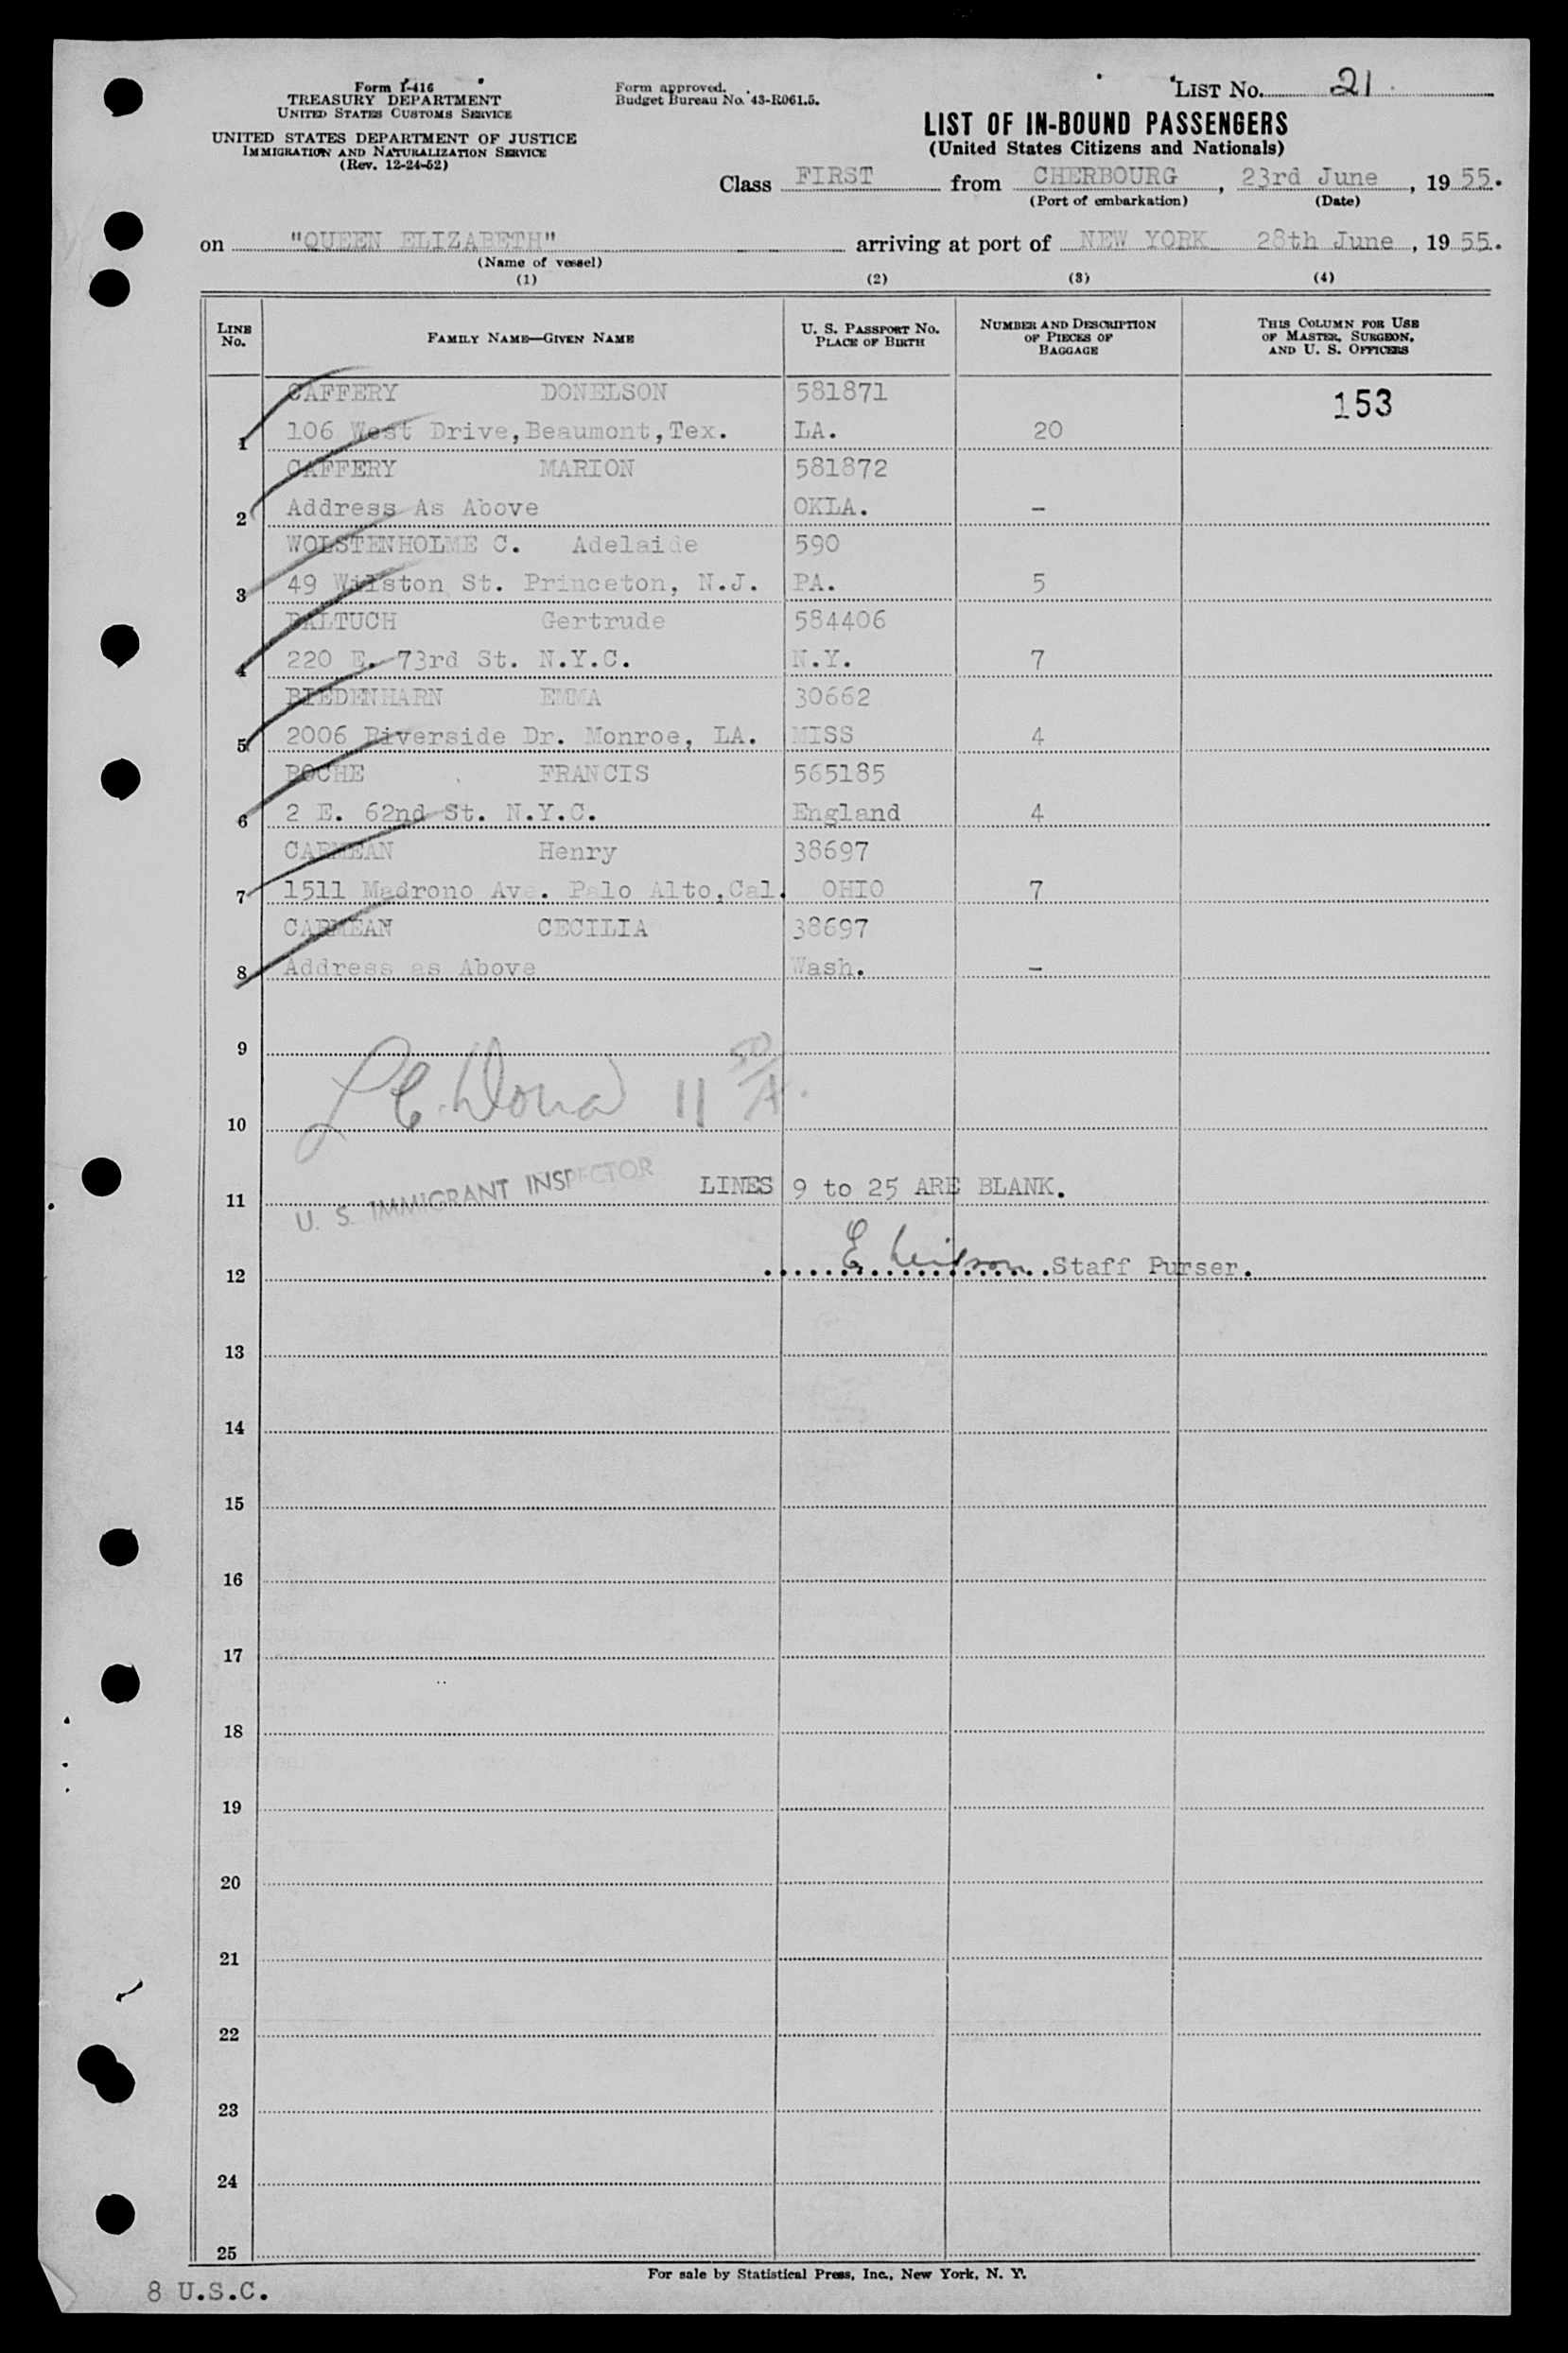 Form I-416
TREASURY DEPARTMENT
UNITED STATES CUSTOMS SERVICE
UNITED STATES DEPARTMENT OF JUSTICE
IMMIGRATION AND NATURALIZATION SERVICE
(Rev. 12-24-52)
Form approved.
Budget Bureau No. 43-R061.5.
LIST NO. 21
LIST OF IN-BOUND PASSENGERS
(United States Citizens and Nationals)
Class FIRST from CHERBOURG, 23rd June, 1955.
(Port of embarkation) (Date)
on "QUEEN ELIZABETH" arriving at port of NEW YORK 28th June, 1955.
(Name of vessel)
(1) (2) (3) (4)
LINE NO. FAMILY NAME—GIVEN NAME U. S. PASSPORT NO. PLACE OF BIRTH NUMBER AND DESCRIPTION OF PIECES OF BAGGAGE THIS COLUMN FOR USE OF MASTER, SURGEON, AND U. S. OFFICERS
CAFFERY DONELSON 581871 153
1 106 West Drive, Beaumont, Tex. LA. 20
CAFFERY MARION 581872
2 Address As Above OKLA. -
WOLSTENHOLME C. Adelaide 590
3 49 St. Princeton, N.J. PA. 5
BALTUCH Gertrude 584406
4 220 E. 73rd St. N.Y.C. N.Y. 7
BIEDENHARN EMMA 30662
5 2006 Riverside Dr. Monroe, LA. MISS 4
ROCHE FRANCIS 565185
6 2 E. 62nd St. N.Y.C. England 4
CARMEAN Henry 38697
7 1511 Madrono Ave. Palo Alto, Cal. OHIO 7
CARMEAN CECILIA 38697
8 Address as Above Wash. -
9
10
U. S. IMMIGRANT INSPECTOR
11 LINES 9 to 25 ARE BLANK.
12 E Neilson Staff Purser.
13
14
15
16
17
18
19
20
21
22
23
24
25
For sale by Statistical Press, Inc., New York, N. Y.
8 U.S.C.